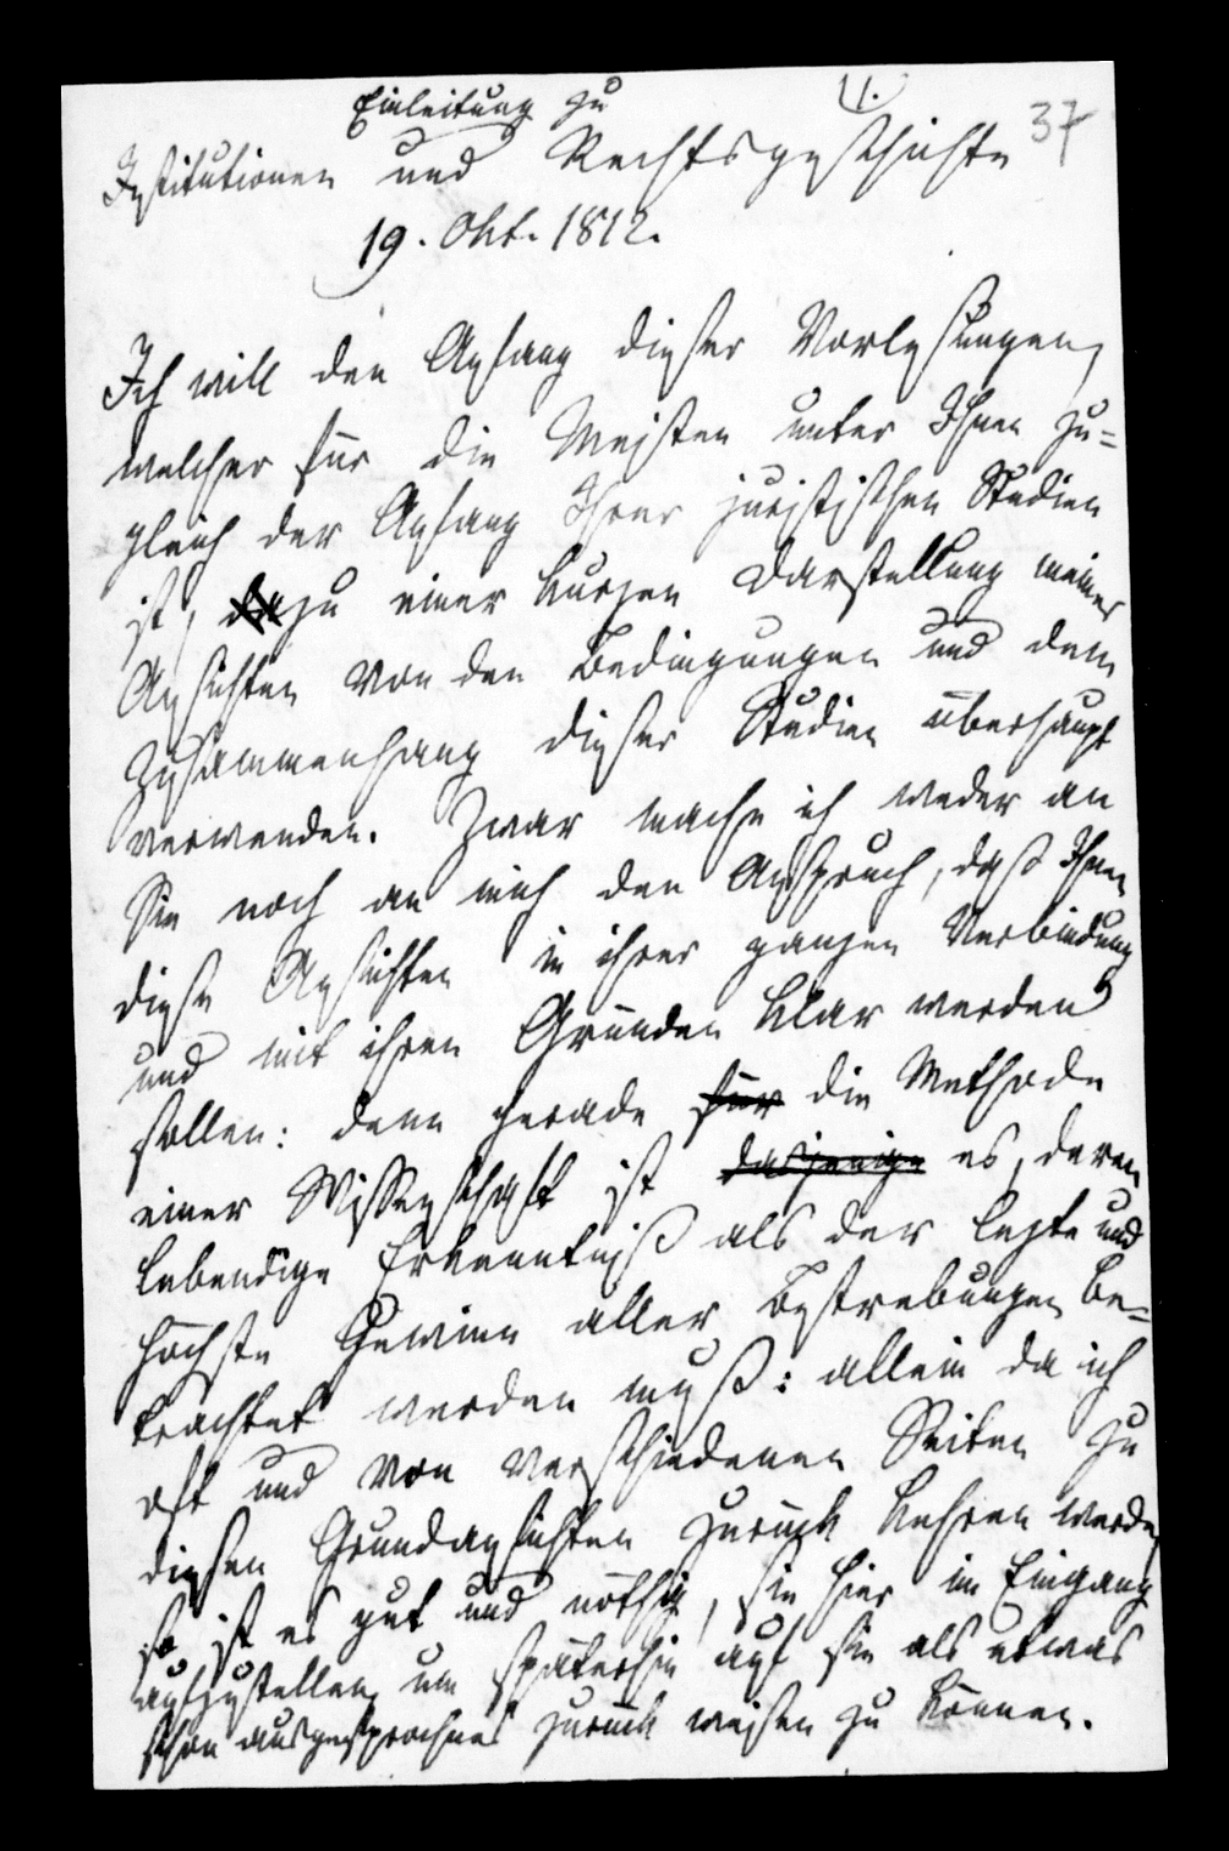 11.
37
Einleitung zu
Institutionen und Rechtsgeschichte
19. Okt. 1812.
Ich will den Anfang dieser Vorlesungen,
welcher für die Meisten unter Ihnen zu=
gleich der Anfang Ihrer juristischen Studien
ist, dazu einer kurzen Darstellung meiner
Ansichten von den Bedingungen und dem
Zusammenhang dieser Studien überhaupt
verwenden. Zwar mache ich weder an
Sie noch an mich den Anspruch, daß Ihnen
diese Ansichten in ihrer ganzen Verbindung
und mit ihren Gründen klar werden
sollen: denn gerade für die Methode
einer Wissenschaft ist dasjenige es, deren
lebendige Erkenntniß als der lezte und
höchste Gewinn aller Bestrebungen be=
trachtet werden muß: allein da ich
oft und von verschiedenen Seiten zu
diesen Grundansichten zurück kehren werde,
so ist es gut und nöthig, sie hier im Eingang
aufzustellen, um späterhin auf sie als etwas
schon ausgesprochnes zurück weisen zu können.